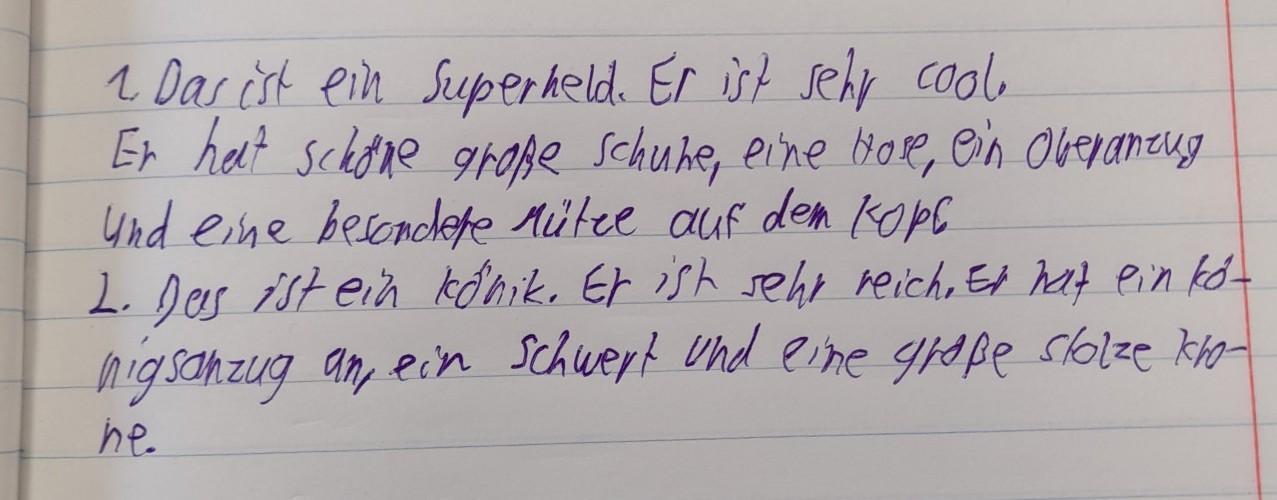 1. Das ist ein Superheld. Er ist sehr cool.
Er hat schöne große Schuhe, eine Hose, ein Oberanzug
und eine besondere Mütze auf dem Kopf
2. Das ist ein könik. Er ist sehr reich. Er hat ein kö-
nigsanzug an, ein Schwert und eine große stolze kro-
ne.